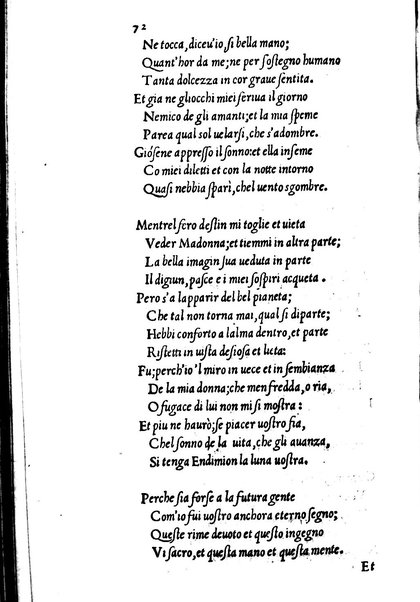 72
Ne tocca, diceu'io, ſi bella mano;
Quant'hor da me; ne per ſoſtegno humano
Tanta dolcezza in cor graue ſentita.
Et gia ne gliocchi miei feriua il giorno
Nemico de gli amanti; et la mia ſpeme
Parea qual ſol uelarſi, che s'adombre.
Gioſene appreſſo il ſonno: et ella inſeme
Co miei diletti et con la notte intorno
Quaſi nebbia ſparì, chel uento sgombre.
Mentrel fero deſtin mi toglie et uieta
Veder Madonna; et tiemmi in altra parte;
La bella imagin ſua ueduta in parte
Il digiun, paſce e i miei ſoſpiri acqueta.
Pero s'a lapparir del bel pianeta;
Che tal non torna mai, qual ſi diparte;
Hebbi conforto a lalma dentro, et parte
Riſtetti in uiſta deſioſa et lieta:
Fu; perch'io'l miro in uece et in ſembianza
De la mia donna; che men fredda, o ria,
O fugace di lui non mi ſi moſtra:
Et piu ne haurò; ſe piacer uoſtro ſia,
Chel ſonno de la uita, che gli auanza,
Si tenga Endimion la luna uoſtra.
Perche ſia forſe a la futura gente
Com'io fui uoſtro anchora eterno ſegno;
Queſte rime deuoto et queſto ingegno
Vi ſacro, et queſta mano et queſta mente.
Et